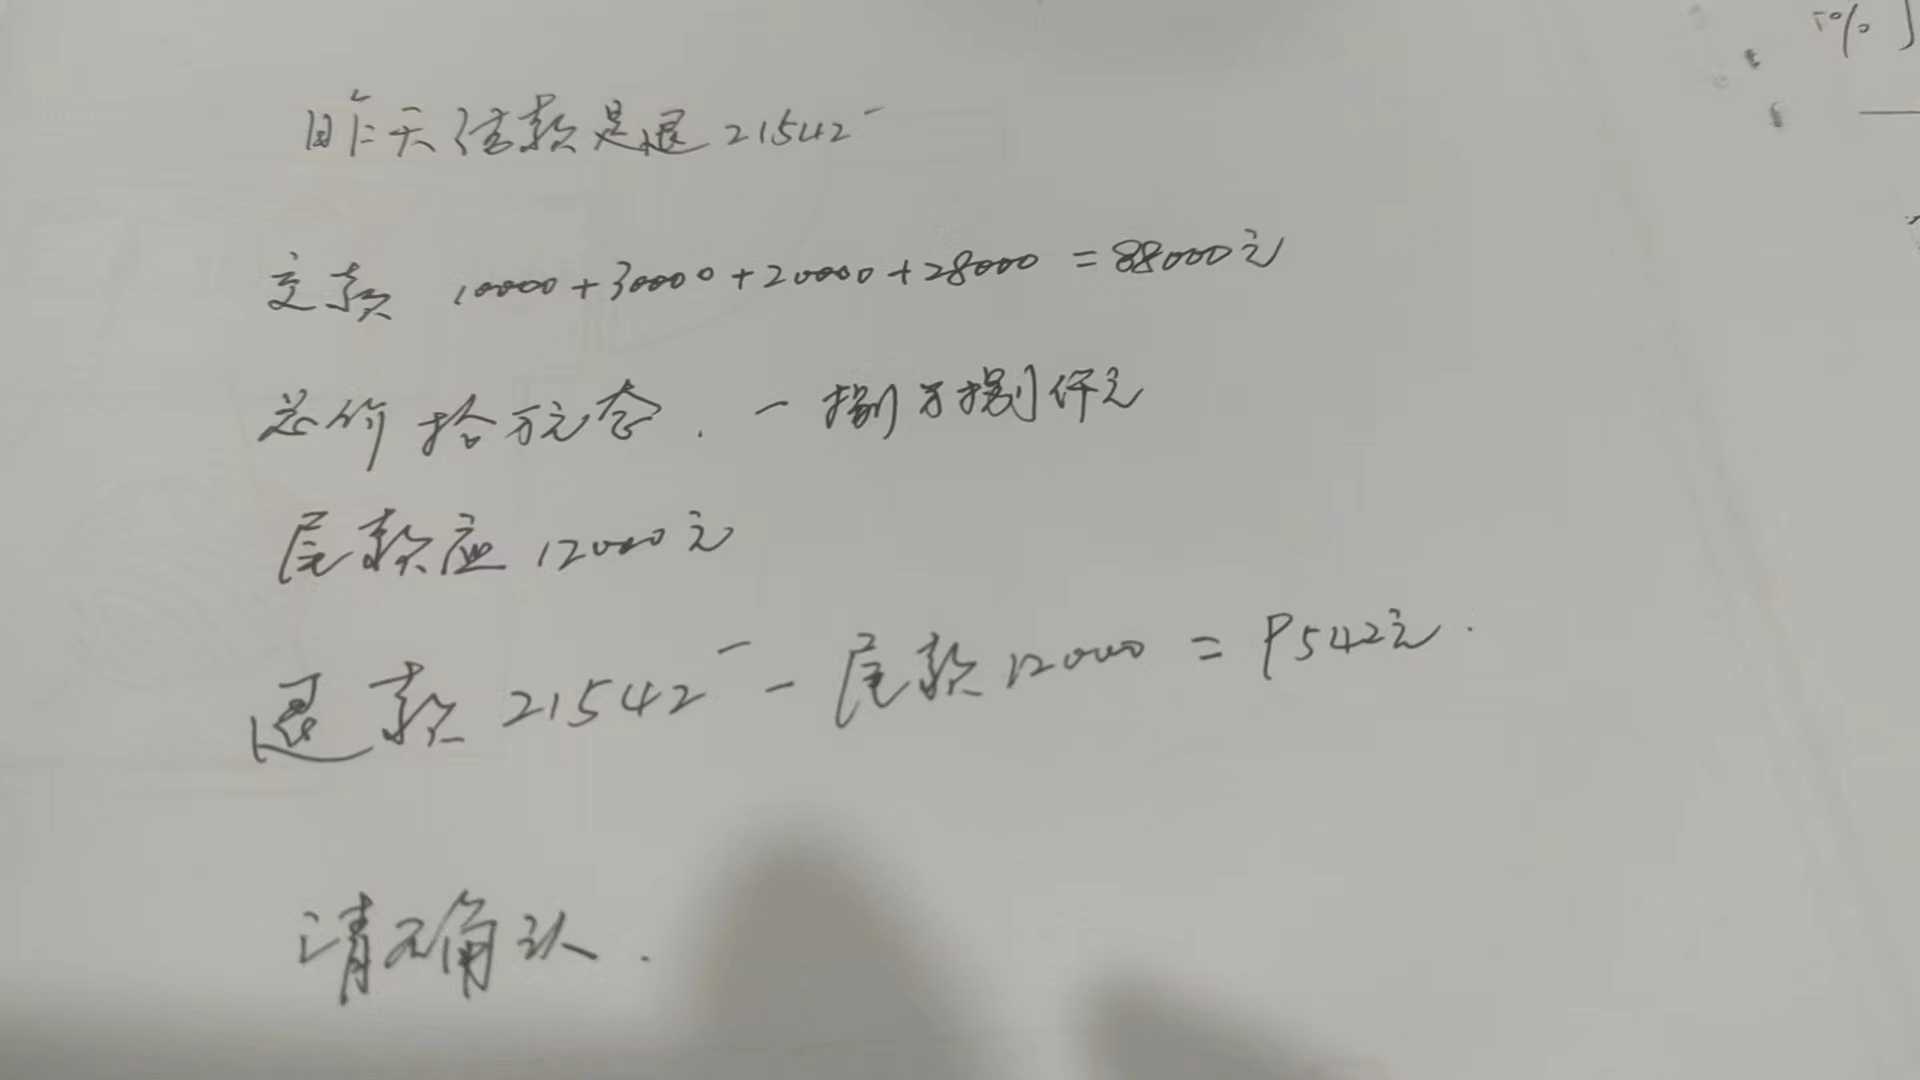 5%
昨天结款是退21542-
交款 10000+30000+20000+28000=88000元
总价拾万元杏.-捌万捌仟元
尾款应12000元
退款21542- - 尾款12000=9542元.
请确认.